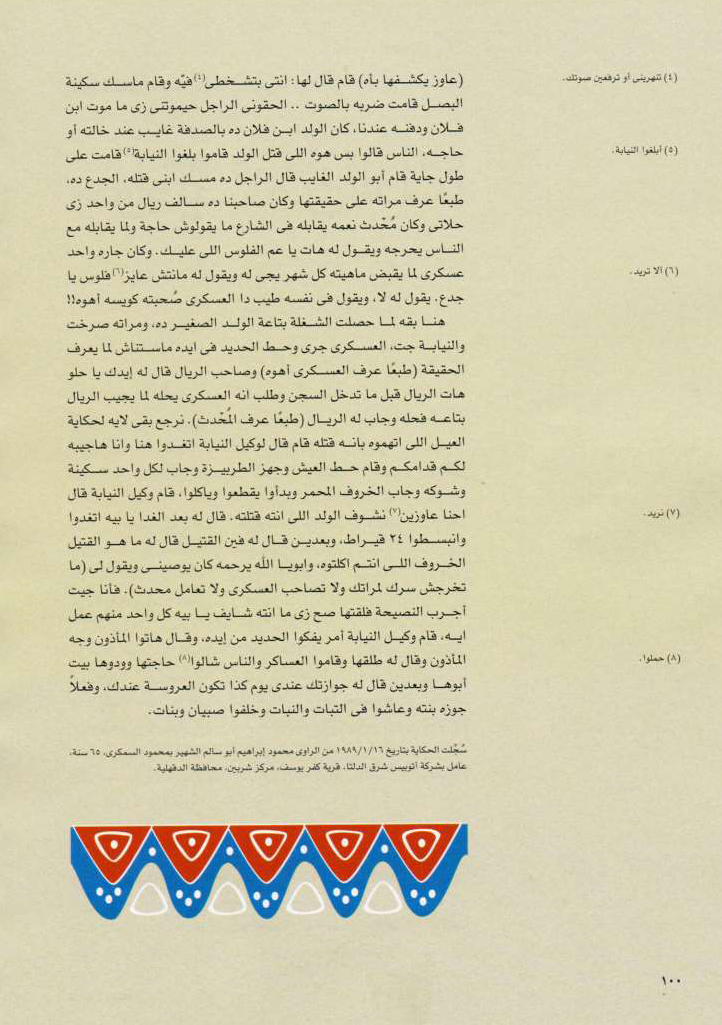 (عاوز يكشفها بأه) قام قال لها: انتى بتشخطى(٤) فيّه وقام ماسك سكينة
البصل قامت ضربه بالصوت .. الحقونى الراجل حيموتنى زى ما موت ابن
فلان ودفنه عندنا، كان الولد ابن فلان ده بالصدفة غايب عند خالته أو
حاجه، الناس قالوا بس هوه اللى قتل الولد قاموا بلغوا النيابة(٥) قامت على
طول جاية قام أبو الولد الغايب قال الراجل ده مسك ابنى قتله، الجدع ده،
طبعًا عرف مراته على حقيقتها وكان صاحبنا ده سالف ريال من واحد زى
حلاتى وكان مُحْدث نعمه يقابله فى الشارع ما يقولوش حاجة ولما يقابله مع
الناس يحرجه ويقول له هات يا عم الفلوس اللى عليك. وكان جاره واحد
عسكرى لما يقبض ماهيته كل شهر يجى له ويقول له مانتش عايز(٦) فلوس يا
جدع. يقول له لا، ويقول فى نفسه طيب دا العسكرى صُحبته كويسه أهوه!!
هنا بقه لما حصلت الشغلة بتاعة الولد الصغير ده، ومراته صرخت
والنيابة جت، العسكرى جرى وحط الحديد فى ايده ماستناش لما يعرف
الحقيقة (طبعًا عرف العسكرى أهوه) وصاحب الريال قال له إيدك يا حلو
هات الريال قبل ما تدخل السجن وطلب انه العسكرى يحله لما يجيب الريال
بتاعه فحله وجاب له الريال (طبعًا عرف المُحْدث). نرجع بقى لايه لحكاية
العيل اللى اتهموه بانه قتله قام قال لوكيل النيابة اتغدوا هنا وانا هاجيبه
لكم قدامكم وقام حط العيش وجهز الطربيزة وجاب لكل واحد سكينة
وشوكه وجاب الخروف المحمر وبدأوا يقطعوا وياكلوا، قام وكيل النيابة قال
احنا عاوزين(٧) نشوف الولد اللى انته قتلته. قال له بعد الغدا يا بيه اتغدوا
وانبسطوا ٢٤ قيراط، وبعدين قال له فين القتيل قال له ما هو القتيل
الخروف اللى انتم اكلتوه، وابويا الله يرحمه كان يوصينى ويقول لى (ما
تخرجش سرك لمراتك ولا تصاحب العسكرى ولا تعامل محدث). فأنا جيت
أجرب النصيحة فلقتها صح زى ما انته شايف يا بيه كل واحد منهم عمل
ايه، قام وكيل النيابة أمر يفكوا الحديد من إيده، وقال هاتوا المأذون وجه
المأذون وقال له طلقها وقاموا العساكر والناس شالوا(٨) حاجتها وودوها بيت
أبوها وبعدين قال له جوازتك عندى يوم كذا تكون العروسة عندك، وفعلاً
جوزه بنته وعاشوا فى التبات والنبات وخلفوا صبيان وبنات.
سُجّلت الحكاية بتاريخ ١٩٨٩/١/١٦ من الراوى محمود إبراهيم أبو سالم الشهير بمحمود السمكرى، ٦٥ سنة،
عامل بشركة أتوبيس شرق الدلتا، قرية كفر يوسف، مركز شربين، محافظة الدقهلية.
(٤) تنهرينى أو ترفعين صوتك.
(٥) أبلغوا النيابة.
(٦) ألا تريد.
(٧) نريد.
(٨) حملوا.
١٠٠